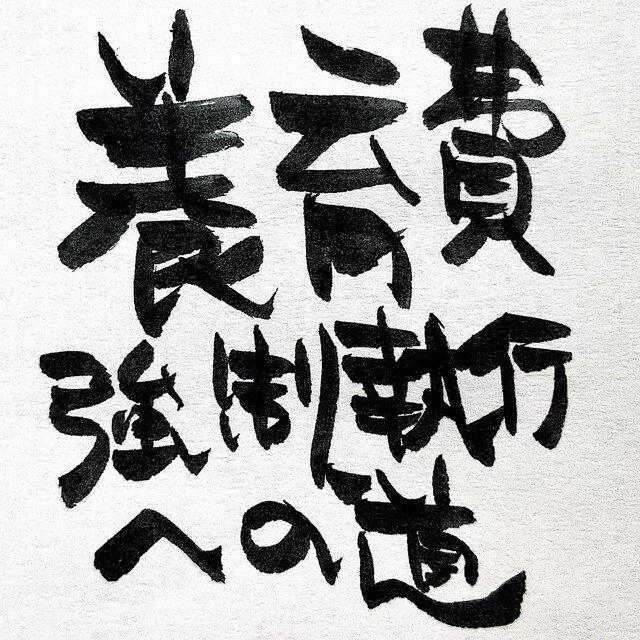 養育費
強制執行
への道